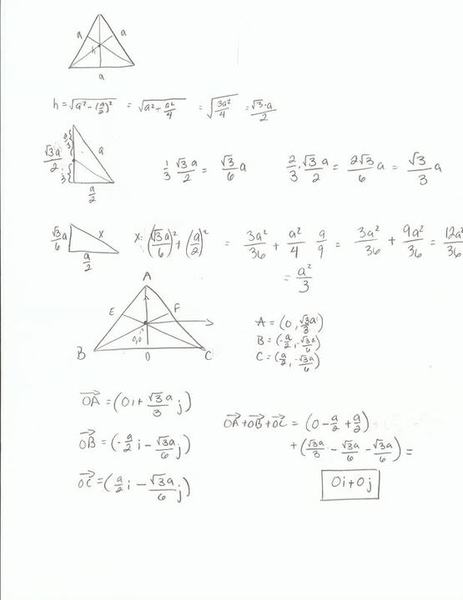 a a
h
a
h = √a² - (a/2)² = √a² + a²/4 = √3a²/4 = √3·a/2
√3a/2 2/3 1/3 a a/2
1/3 √3a/2 = √3/6 a 2/3 · √3a/2 = 2√3/6 a = √3/3 a
√3a/6 x a/2
x: (√3a/6)² + (a/2)² = 3a²/36 + a²/4 9/9 = 3a²/36 + 9a²/36 = 12a²/36
= a²/3
A
E F
0,0
B O C
A = (0, √3a/3)
B = (-a/2, -√3a/6)
C = (a/2, -√3a/6)
OA = (0i + √3a/3 j)
OB = (-a/2 i - √3a/6 j)
OC = (a/2 i - √3a/6 j)
OA + OB + OC = (0 - a/2 + a/2)
+ (√3a/3 - √3a/6 - √3a/6) =
0i + 0j